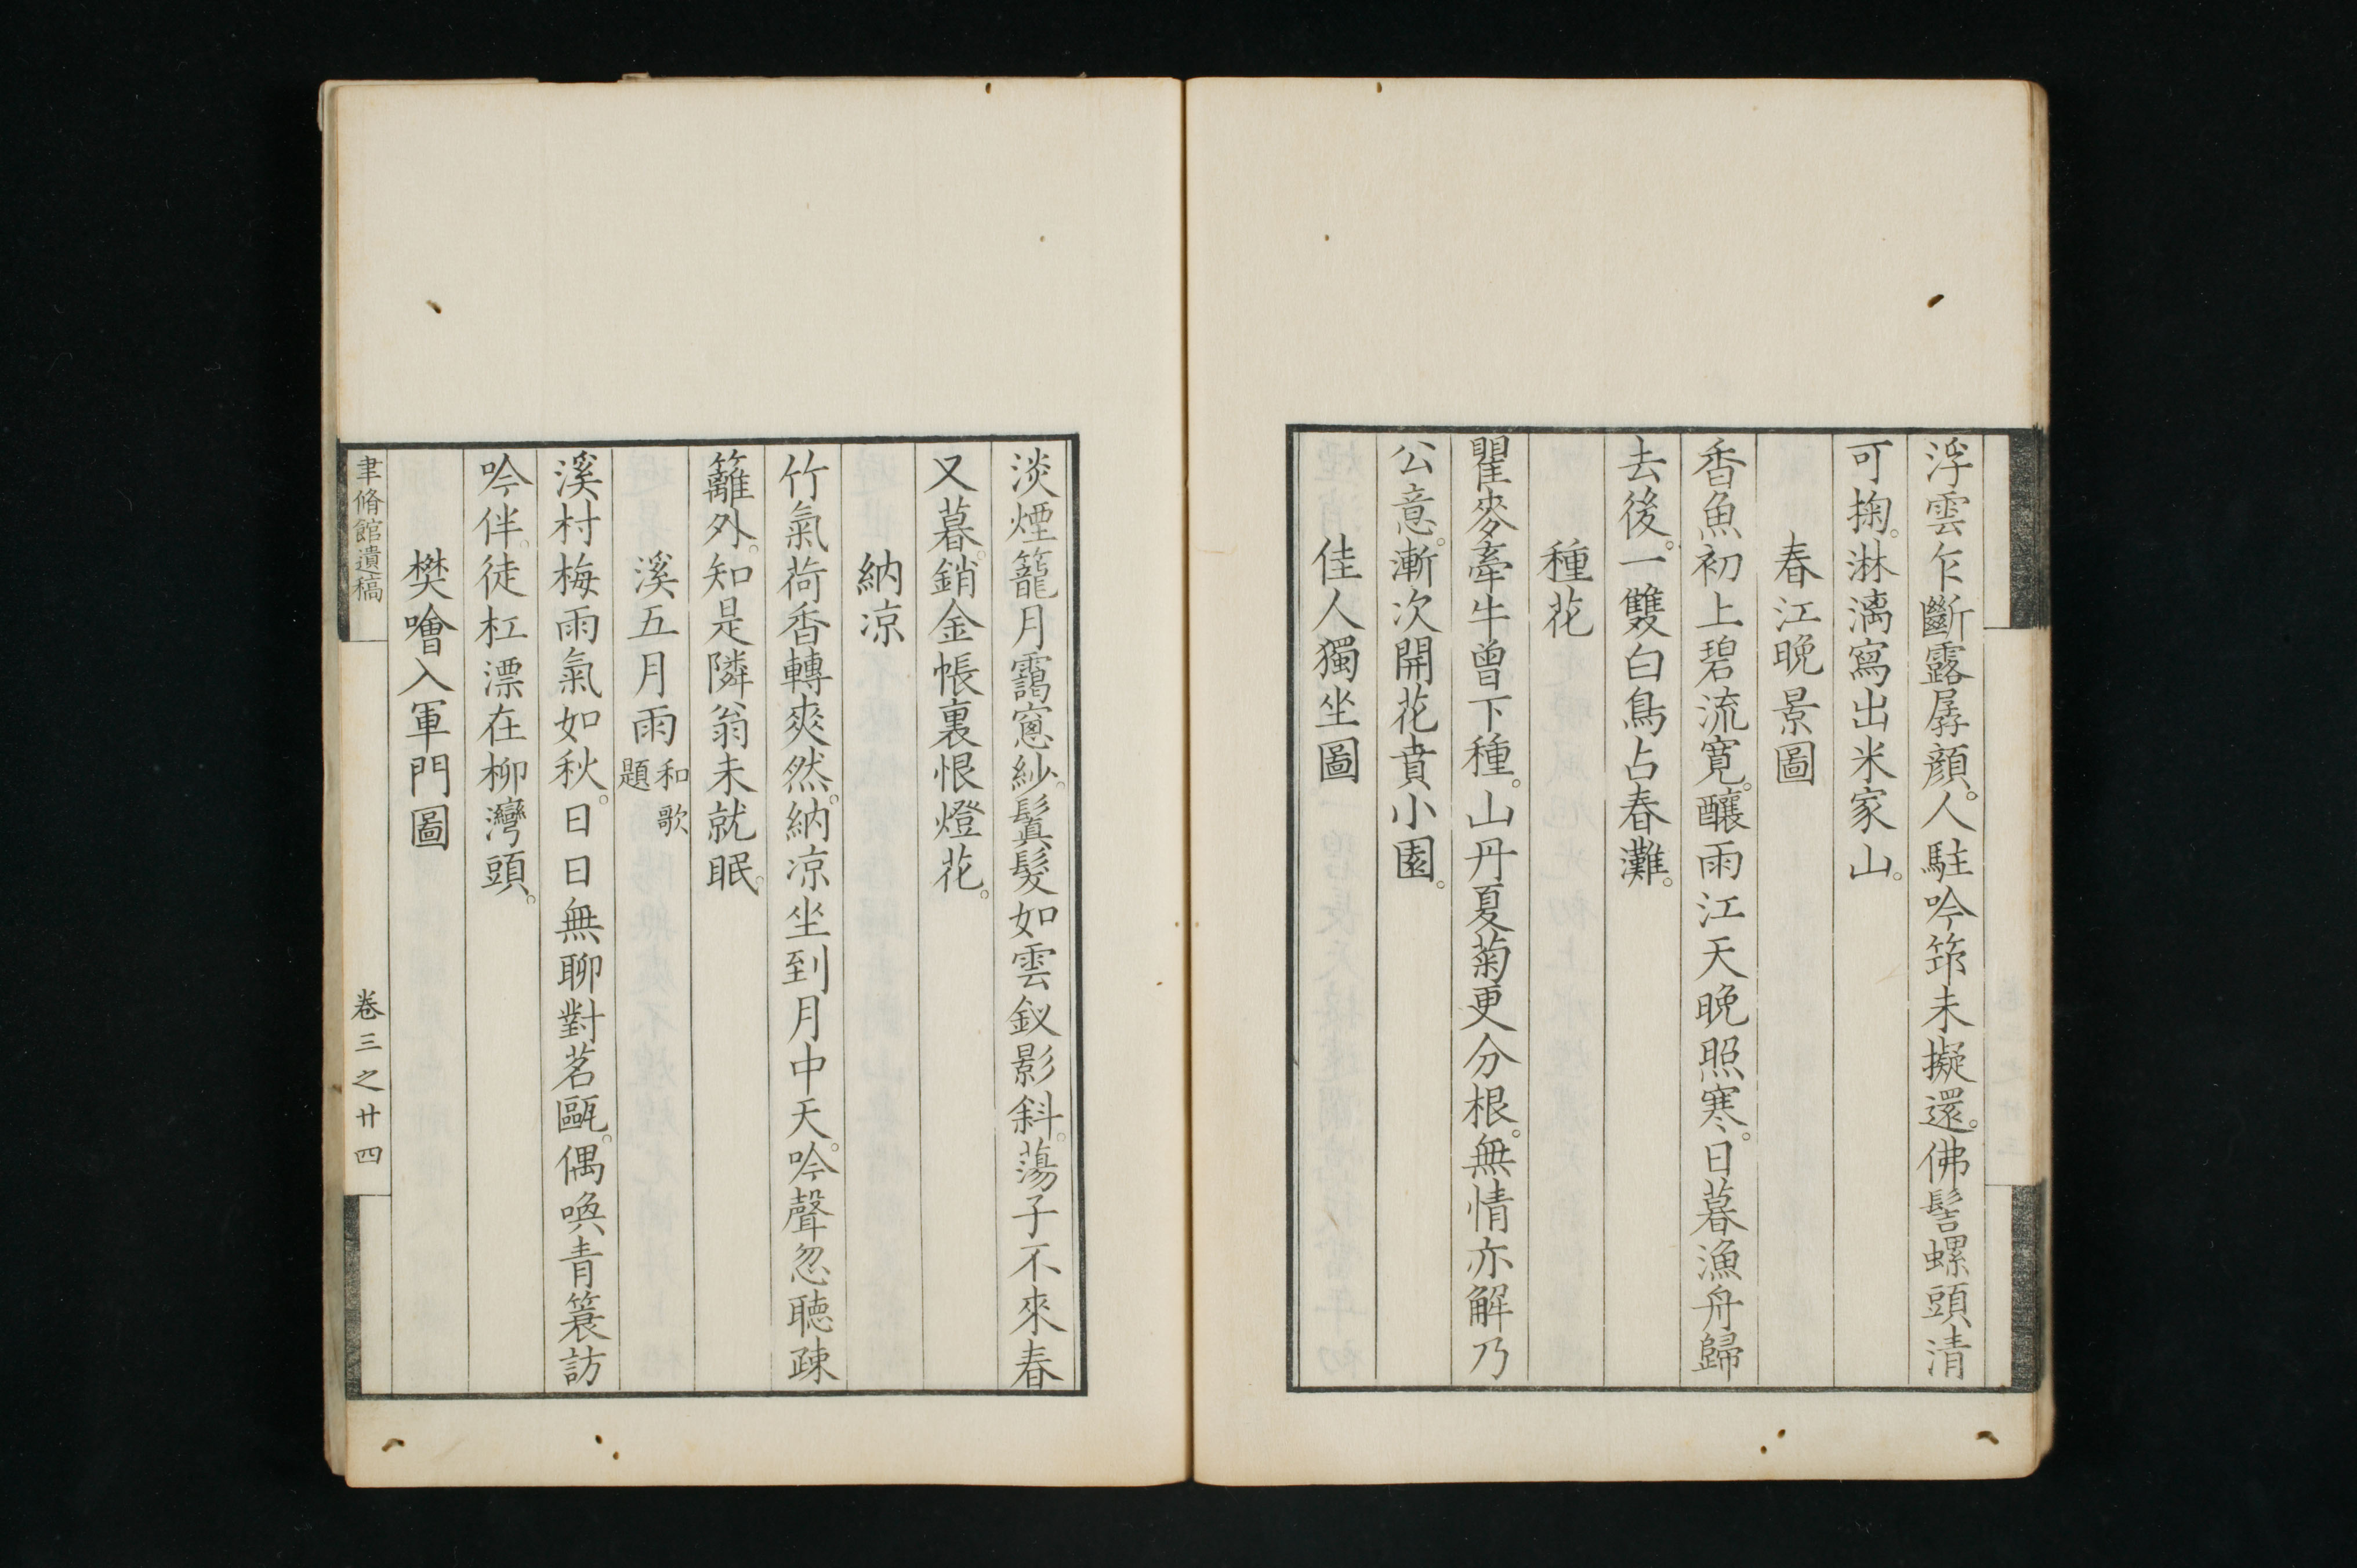 浮雲乍斷露孱顔。人駐吟筇未擬還。佛髻螺頭清
可掬。淋漓寫出米家山。
春江晩景圖
香魚初上碧流寛。釀雨江天晩照寒。日暮漁舟歸
去後。一雙白鳥占春灘。
種花
瞿麥牽牛曾下種。山丹夏菊更分根。無情亦解乃
公意。漸次開花賁小園。
佳人獨坐圖
淡煙籠月靄窻紗。鬒髮如雲釵影斜。蕩子不來春
又暮。銷金帳裏恨燈花。
納凉
竹氣荷香轉爽然。納凉坐到月中天。吟聲忽聴疎
籬外。知是隣翁未就眠。
溪五月雨 和歌題
溪村梅雨氣如秋。日日無聊對茗甌。偶喚青簑訪
吟伴。徒杠漂在柳灣頭。
樊噲入軍門圖
聿脩館遺稿 卷三之廿四